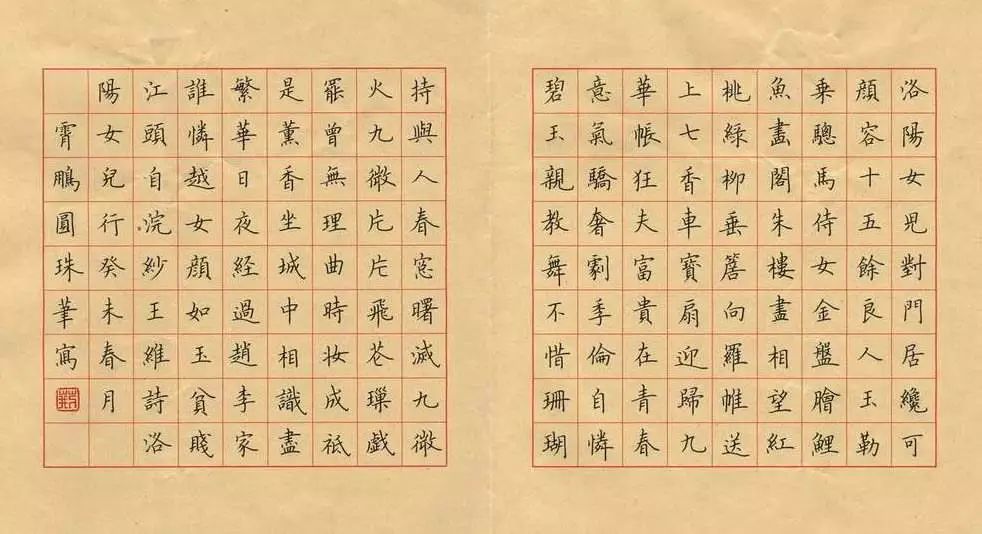 洛陽女兒對門居纔可
顏容十五餘良人玉勒
乗驄馬侍女金盤膾鯉
魚畫閣朱樓盡相望紅
桃綠柳垂簷向羅帷送
上七香車寶扇迎歸九
華帳狂夫富貴在青春
意氣驕奢劇季倫自憐
碧玉親教舞不惜珊瑚
持與人春窓曙滅九微
火九微片片飛花璅戲
罷曾無理曲時妝成祇
是薰香坐城中相識盡
繁華日夜經過趙李家
誰憐越女顏如玉貧賤
江頭自浣紗王維詩洛
陽女兒行癸未春月
霄鵬圓珠筆寫